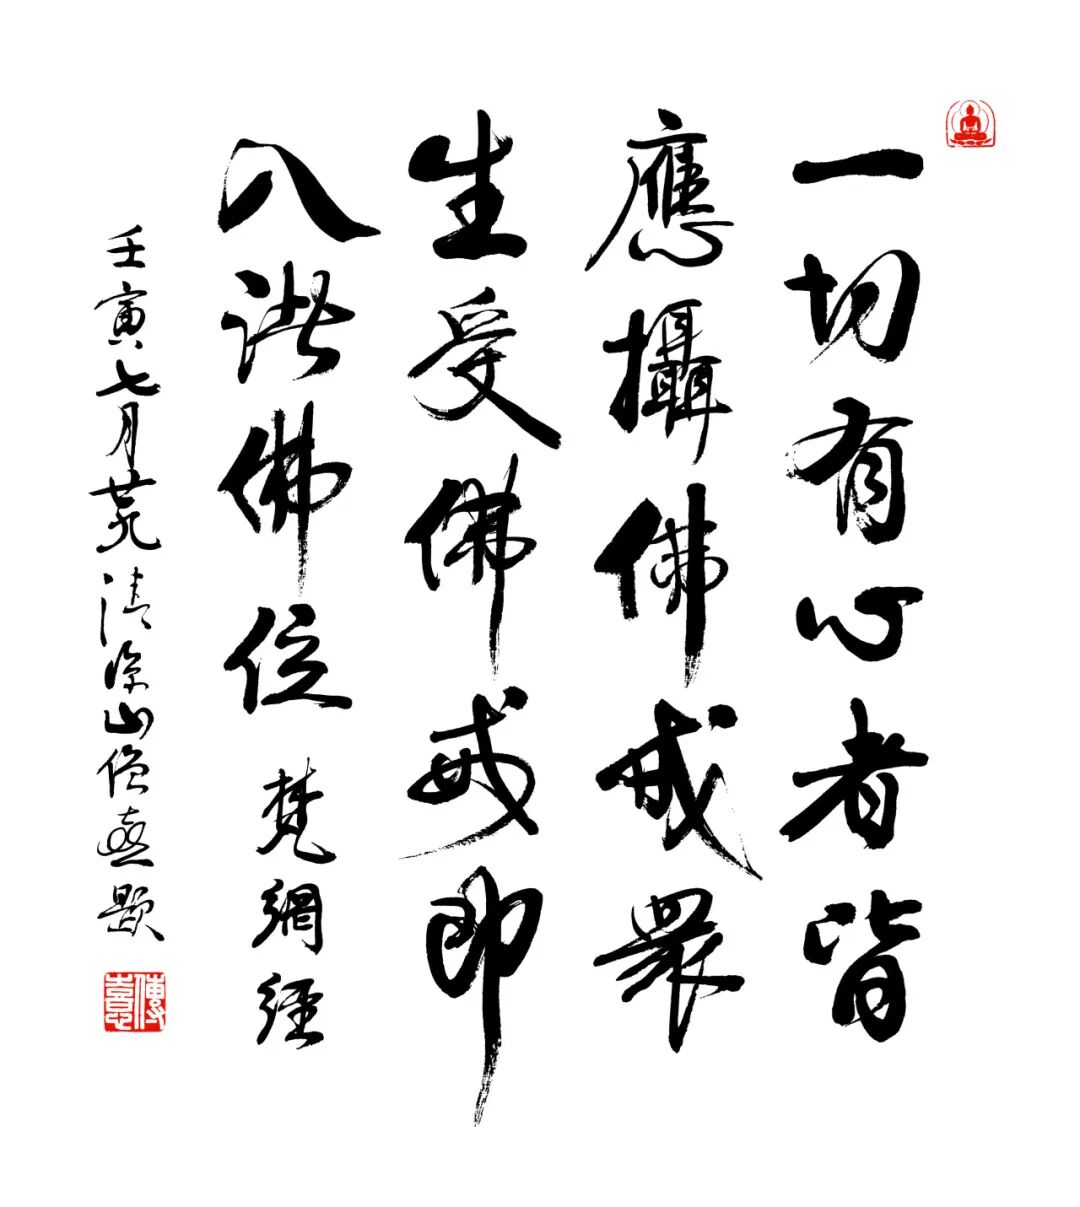 一切有心者皆
應攝佛戒眾
生受佛戒即
入諸佛位 梵網經
壬寅七月荒清涼山僧憙題
傳憙